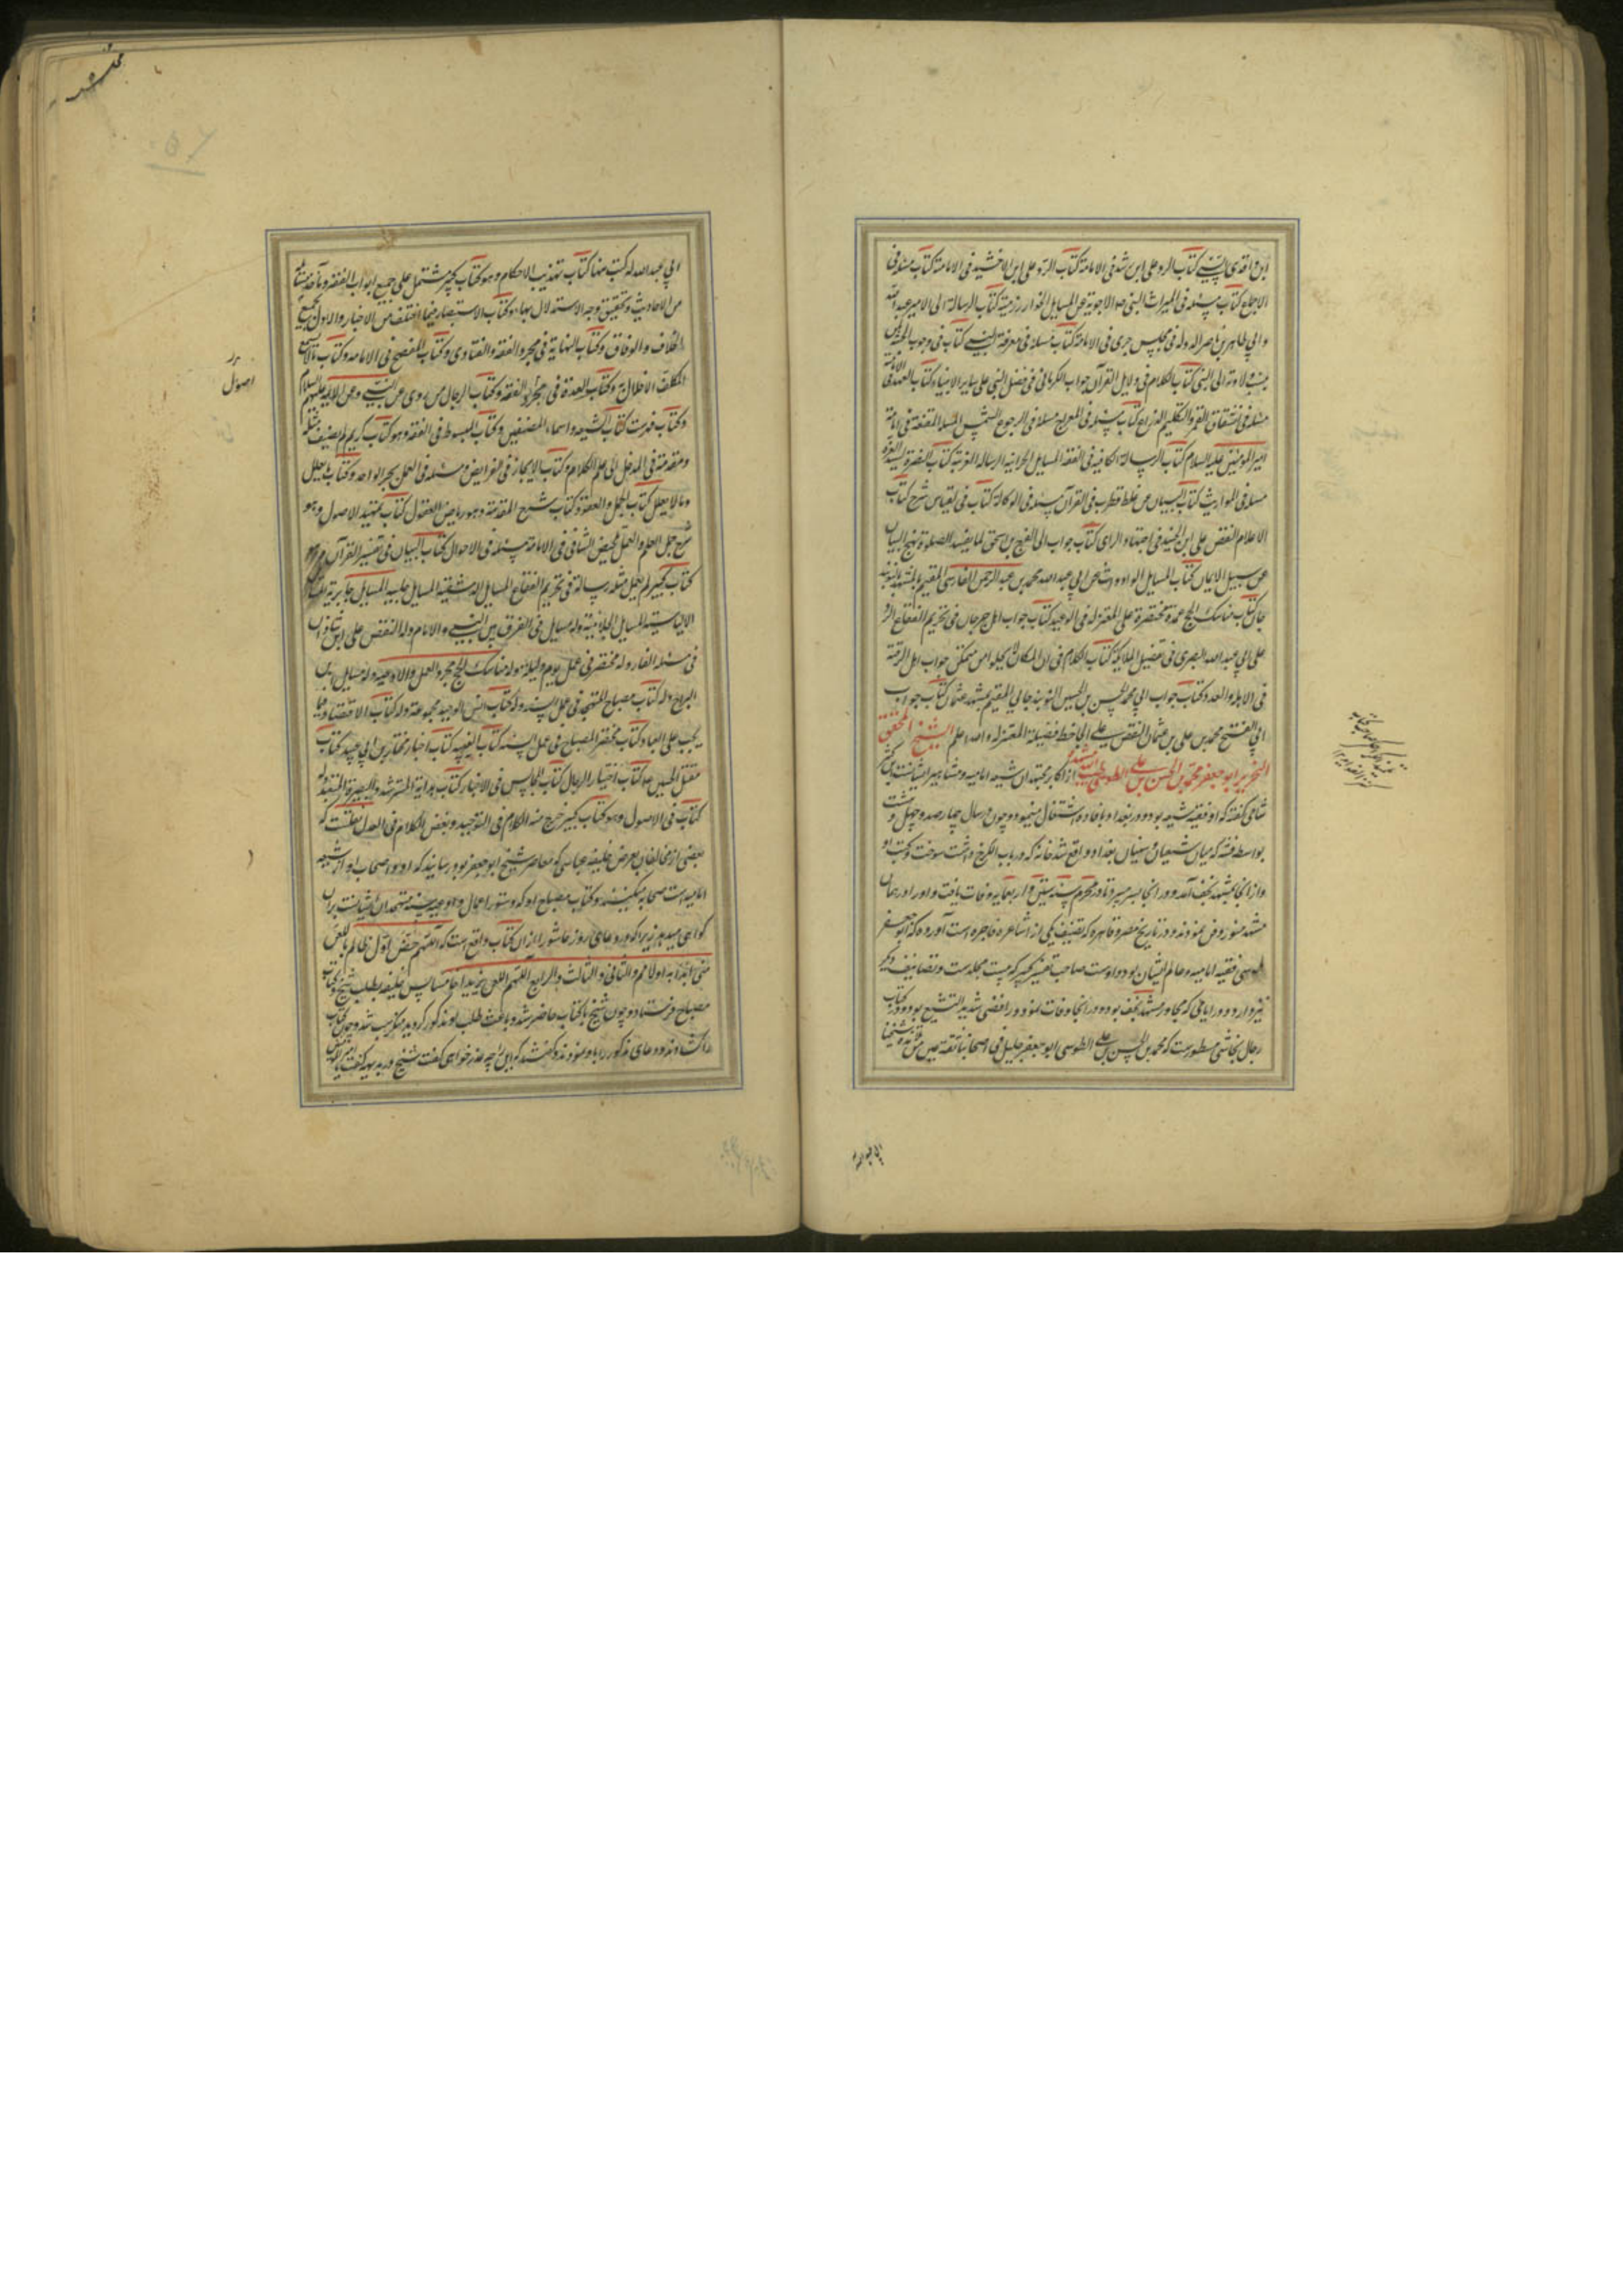 ابن واقدی السنی کتاب الرد علی ابن رشد فی الامامة کتاب الرد علی ابن الاخشید فی الامامة کتاب مسئله فی
الاجماع کتاب مسئله فی المیراث النبی ص الاجوبة عن المسایل الخوارزمیة کتاب الرسالة الی الامیر عبدالله
وابی طاهر بن ناصر الدوله فی مجلس جری فی الامامة کتاب مسئلة فی معرفة النبی کتاب فی وجوب الجنة
الی النبی کتاب الکلام فی دلایل القرآن جواب الکرمانی فی فضل النبی علی سایر الانبیا کتاب العمد فی الامامة
مسئله فی انشقاق القمر وتکلیم الذراع کتاب مسئله فی المعراج مسئلة فی الرجوع الشمس المسئلة المقنعة فی امامة
امیر المؤمنین علیه السلام کتاب الرسالة الکافیة فی الفقه المسایل الحرانیه الرساله الغریة کتاب النصرة لسید العترة
مسئلة فی المواریث کتاب البیان عن غلط قطرب فی القرآن مسئله فی الوکالة کتاب فی القیاس شرح کتاب
الاعلام النقض علی ابن الجنید فی اجتهاد الرای کتاب جواب ابی الفرج بن اسحق لما یفسد الصلوة نهج البیان
عن سبیل الایمان کتاب المسایل الوارده عن ابی عبدالله محمد بن عبد الرحمن الفارسی المقیم بالمشهد بالنوبند
جان کتاب مناسک الحج عمدة مختصرة علی المعتزله فی الوعید کتاب جواب اهل جرجان فی تحریم الفقاع الرد
علی ابی عبدالله البصری فی تفضیل الملایکة کتاب الکلام فی ان المکان لا یخلو من متمکن جواب اهل الرقة
فی الاهلة والعدد کتاب جواب ابی محمد الحسن بن الحسین النوبندجانی المقیم بمشهد عثمان کتاب جواب
ابی الفتح محمد بن علی بن عثمان النقض علی الجاحظ فضیلة المعتزله والله اعلم الشیخ المحقق
النحریر ابو جعفر محمد بن الحسن بن علی الطوسی از اکابر مجتهدان شیعه امامیه و مشاهیر ایشانست ابن کثیر
شامی گفته که او فقیه شیعه بود و در بغداد بافاده اشتغال مینمود و چون در سال چهارصد و چهل و هشت
بواسطه فتنه که میان شیعیان و سنیان بغداد واقع شد خانه که در باب الکرخ داشت سوخت و کتب او
و از انجا بمشهد نجف آمد و در انجا بسر میبرد تا در محرم سنه ستین و اربعمایه وفات یافت و او را در همان
مشهد منور دفن نمودند و در تاریخ مصر و قاهره که تصنیف یکی از اشاعره فاجره است آورده که ابو جعفر
طوسی فقیه امامیه و عالم ایشان بود و اوست صاحب تفسیر کبیر که بیست مجلدست و تصانیف دیگر
نیز دارد و در ایامی که مجاور مشهد نجف بود و در انجا وفات نمود و رافضی شدید التشیع بود و در کتاب
رجال نجاشی مسطورست که محمد بن الحسن بن علی الطوسی ابو جعفر جلیل فی اصحابنا ثقة عین من تلامذة شیخنا
ابی عبدالله
ابی عبدالله له کتب منها کتاب تهذیب الاحکام وهو کتاب کبیر مشتمل علی جمیع ابواب الفقه
من الاحادیث و تحقیق وجه الاستدلال بها و کتاب الاستبصار فیما اختلف من الاخبار
الخلاف والوفاق وکتاب النهایة فی مجرد الفقه والفتاوی وکتاب المفصح فی الامامه وکتاب
المکلف الاخلال به وکتاب العدة فی الفقه وکتاب الرجال من روی عن النبی وعن الایمه علیهم السلام
وکتاب فهرست کتاب الشیعه واسماء المصنفین وکتاب المبسوط فی الفقه وهو کتاب کریم لم یصنف مثله
ومقدمة فی المدخل الی علم الکلام وکتاب الایجاز فی الفرایض ومسئله فی العمل بخبر الواحد وکتاب ما یعلل
وما لا یعلل کتاب الجمل والعقود وکتاب شرح المقدمة وهو ریاض العقول کتاب تمهید الاصول وهو
شرح جمل العلم والعمل تلخیص الشافی فی الامامة مسئله فی الاحوال کتاب التبیان فی تفسیر القرآن وهو
کتاب کبیر لم یعمل مثله رسالة فی تحریم الفقاع المسایل الدمشقیه المسایل حلبیه المسایل حایریه المسایل
الالیاسیه المسایل الجیلانیة وله مسایل فی الفرق بین النبی والامام وله النقض علی ابن شاذان
فی مسئله الغار وله مختصر فی عمل یوم ولیله وله مناسک الحج مجرد العمل والادعیه وله مسایل ابن
البراج وله کتاب مصباح المتهجد فی عمل السنه وله کتاب انس الوحید مجموعة وله کتاب الاقتصاد فیما
یجب علی العباد وکتاب مختصر المصباح فی عمل السنه کتاب الغیبه کتاب اخبار مختار بن ابی عبید کتاب
مقتل الحسین ع کتاب اختیار الرجال کتاب المجالس فی الاخبار کتاب هدایة المسترشد وبصیرة المتعبد وله
کتاب فی الاصول وهو کتاب کبیر خرج منه الکلام فی التوحید وبعض الکلام فی العدل نقلست که
بعضی از مخالفان بعرض خلیفه عباسی که معاصر شیخ ابو جعفر بود رسانیدند که او و اصحاب او از شیعه
امامیه است صحابه میکنند و کتاب مصباح او که دستور اعمال و ادعیه سنه متهجدان ایشانست بران
گواهی میدهد زیرا که در دعای روز عاشورا از آن کتاب واقع است که اللهم خص اول ظالم باللعن
منی ابدا به اولا ثم والثانی والثالث والرابع اللهم العن یزید خامسا پس خلیفه بطلب شیخ و کتاب
مصباح فرستاد و چون شیخ با کتاب حاضر شد و باعث طلب او مذکور گردید منکر سب شد و چون کتاب
را گشادند و دعای مذکور را باو نمودند و گفتند که این را چه عذر خواهی گفت شیخ در بدیهه گفت یا امیر المؤمنین
اصول